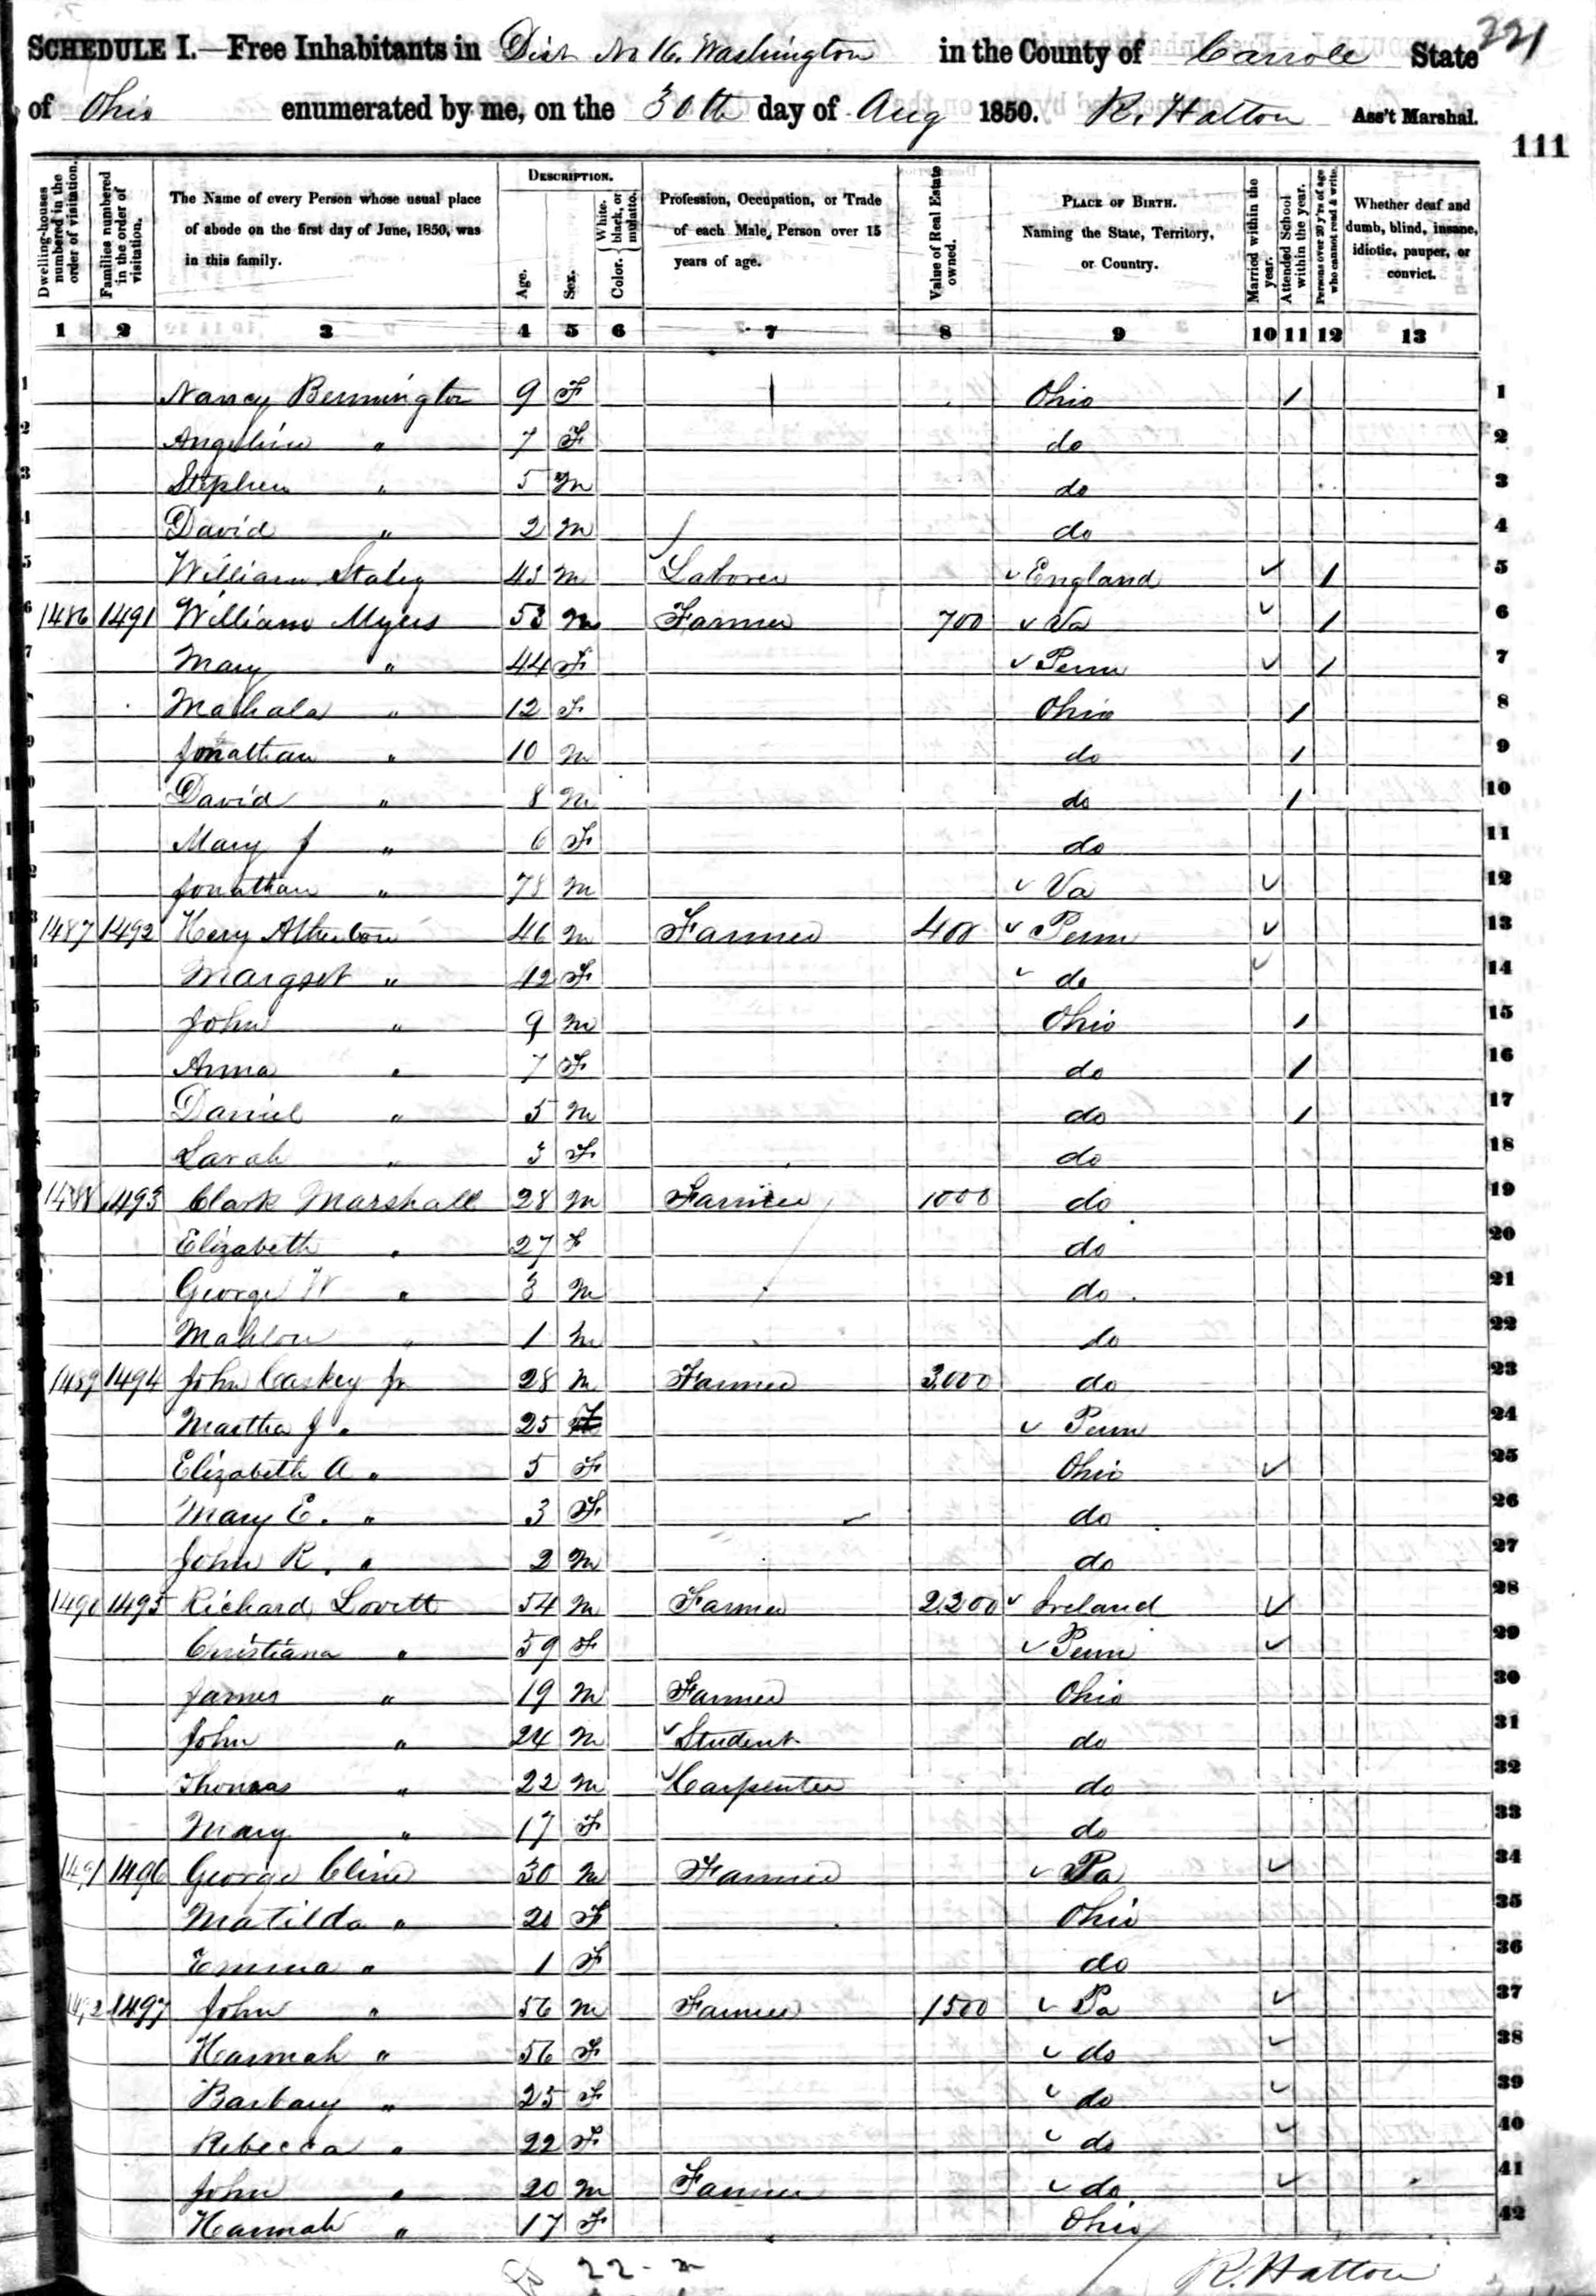 221
SCHEDULE I.—Free Inhabitants in Dist No 16. Washington in the County of Carroll State
of Ohio enumerated by me, on the 30th day of Aug 1850. R. Hatton Ass't Marshal.
111
Dwelling-houses numbered in the order of visitation.
Families numbered in the order of visitation.
The Name of every Person whose usual place of abode on the first day of June, 1850, was in this family.
DESCRIPTION.
Age.
Sex.
Color. { White, black, or mulatto.
Profession, Occupation, or Trade of each Male Person over 15 years of age.
Value of Real Estate owned.
PLACE OF BIRTH. Naming the State, Territory, or Country.
Married within the year.
Attended School within the year.
Persons over 20 y'rs of age who cannot read & write.
Whether deaf and dumb, blind, insane, idiotic, pauper, or convict.
1 2 3 4 5 6 7 8 9 10 11 12 13
1 Nancy Bennington 9 F Ohio / 1
2 Angeline " 7 F do 2
3 Stephen " 5 M do 3
4 David " 2 M do 4
5 William Staley 45 M Laborer ✓ England ✓ / 5
6 1486 1491 William Myers 53 M Farmer 700 ✓ Va ✓ / 6
7 Mary " 44 F ✓ Penn ✓ / 7
Mahala " 12 F Ohio / 8
9 Jonathan " 10 M do / 9
David " 8 M do / 10
Mary J " 6 F do 11
Jonathan " 78 M ✓ Va ✓ 12
1487 1492 Hery Atherton 46 M Farmer 400 ✓ Penn ✓ 13
Margset " 42 F ✓ do ✓ 14
John " 9 M Ohio / 15
Anna " 7 F do / 16
Daniel " 5 M do / 17
Sarah " 3 F do 18
1488 1493 Clark Marshall 28 M Farmer 1000 do 19
Elizabeth " 27 F do 20
George W " 3 M do 21
Mahlon " 1 M do 22
1489 1494 John Caskey Jr 28 M Farmer 3,000 do 23
Martha J. " 25 F ✓ Penn 24
Elizabeth A " 5 F Ohio ✓ 25
Mary E. " 3 F do 26
John R. " 2 M do 27
1490 1495 Richard Lovett 54 M Farmer 2,200 ✓ Ireland ✓ 28
Christiana " 59 F ✓ Penn ✓ 29
James " 19 M Farmer Ohio 30
John " 24 M ✓ Student do 31
Thomas " 22 M ✓ Carpenter do 32
Mary " 17 F do 33
1491 1496 George Cline 30 M Farmer ✓ Pa ✓ 34
Matilda " 20 F Ohio 35
Emma " 1 F do 36
1492 1497 John " 56 M Farmer 1500 ✓ Pa ✓ 37
Hannah " 56 F ✓ do ✓ 38
Barbary " 25 F ✓ do ✓ 39
Rebecca " 22 F ✓ do ✓ 40
John " 20 M Farmer ✓ do ✓ 41
Hannah " 17 F Ohio 42
22 - m
R. Hatton